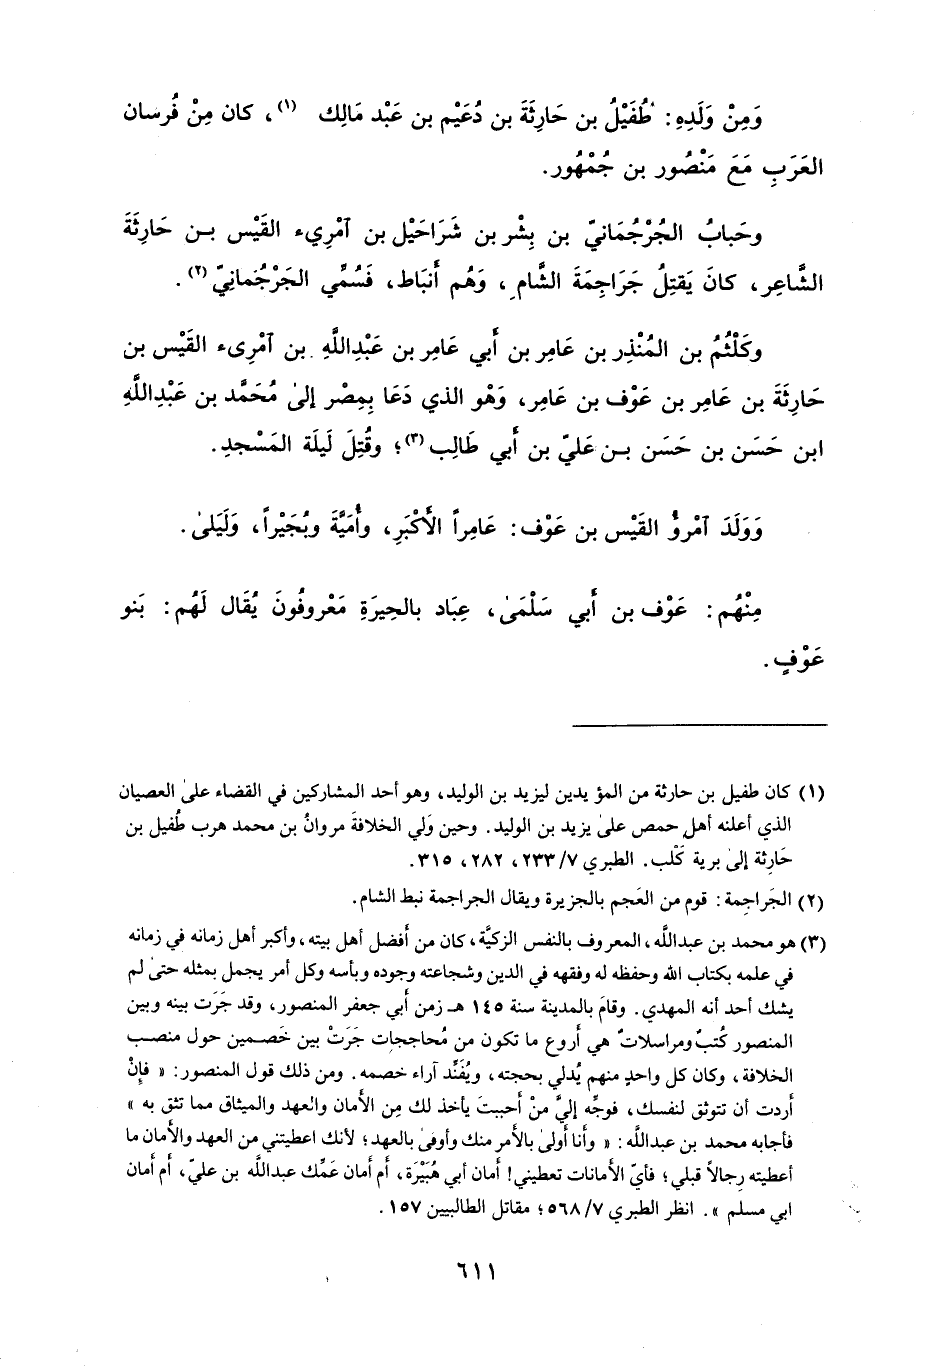 وَمِنْ وَلَدِهِ: طُفَيْلُ بن حَارِثَةَ بن دُعَيْم بن عَبْد مَالِك (١)، كان مِنْ فُرسان
العَرَبِ مَعَ مَنْصُور بن جُمْهُور.
وحَبابُ الجُرْجُمَانيّ بن بِشْر بن شَرَاحَيْل بن آمْرِيء القَيْس بـن حَارِثَةَ
الشَّاعِر، كانَ يَقتِلُ جَرَاجِمَةَ الشَّام، وَهُم أَنبَاط، فَسُمِّي الجَرْجُمانِيّ(٢).
وكَلْثُمُ بن المُنْذِر بن عَامِر بن أَبي عَامِر بن عَبْدِاللَّهِ بن آمْرِىء القَيْس بن
حَارِثَةَ بن عَامِر بن عَوْف بن عَامِر، وَهْو الذي دَعَا بِمِصْر إلىٰ مُحَمَّد بن عَبْدِاللَّهِ
ابن حَسَن بن حَسَن بـن عَليّ بن أَبي طَالِب(٣)؛ وقُتِلَ لَيلَة المَسْجدِ.
وَوَلَدَ آمْرؤُ القَيْس بن عَوْف: عَامِراً الأَكْبَرِ، وأُمَيَّةَ وبُجَيْراً، وَلَيَلىٰ.
مِنْهُم: عَوْف بن أَبي سَلْمَىٰ، عِبَاد بالحِيرَةِ مَعْروفُونَ يُقَال لَهُم: بَنو
عَوْفٍ.
(١) كان طفيل بن حارثة من المؤيدين ليزيد بن الوليد، وهو أحد المشاركين في القضاء علىٰ العصيان
الذي أعلنه أهل حمص علىٰ يزيد بن الوليد. وحين وَلي الخلافةَ مروانُ بن محمد هرب طُفيل بن
حَارِثة إلىٰ برية كَلْب. الطبري ٧/ ٢٣٣، ٢٨٢، ٣١٥.
(٢) الجَراجِمة: قوم من العَجم بالجزيرة ويقال الجراجمة نبط الشام.
(٣) هو محمد بن عبدالله، المعروف بالنفس الزكيَّة، كان من أَفضل أهل بيته، وأكبر أهل زمانه في زمانه
في علمه بكتاب الله وحفظه له وفقهه في الدين وشجاعته وجوده وبأسه وكل أمر يجمل بمثله حتىٰ لم
يشك أحد أنه المهدي. وقامَ بالمدينة سنة ١٤٥ هـ زمن أبي جعفر المنصور، وقد جَرَت بينه وبين
المنصور كُتبٌ ومراسلاتٌ هي أروع ما تكون من مُحاججات جَرَتْ بين خَصـمين حول منصـب
الخلافة، وكان كل واحدٍ منهم يُدلي بحجته، ويُفَنِّد آراء خصمه. ومن ذلك قول المنصور: « فإِنْ
أردت أن تتوثق لنفسك، فوجِّه إليَّ منْ أَحببتَ يأخذ لك مِن الأَمان والعهد والميثاق مما تثق به »
فأجابه محمد بن عبدالله: « وأنا أَولىٰ بالأَمر منك وأوفىٰ بالعهد؛ لأنك اعطيتني من العهد والأمان ما
أعطيته رِجالاً قبلي؛ فأيّ الأمانات تعطيني! أمان أبي هُبَيْرَة، أم أمان عَمِّك عبدالله بن عليّ، أم أمان
ابي مسلم ». انظر الطبري ٧/ ٥٦٨؛ مقاتل الطالبيين ١٥٧.
٦١١